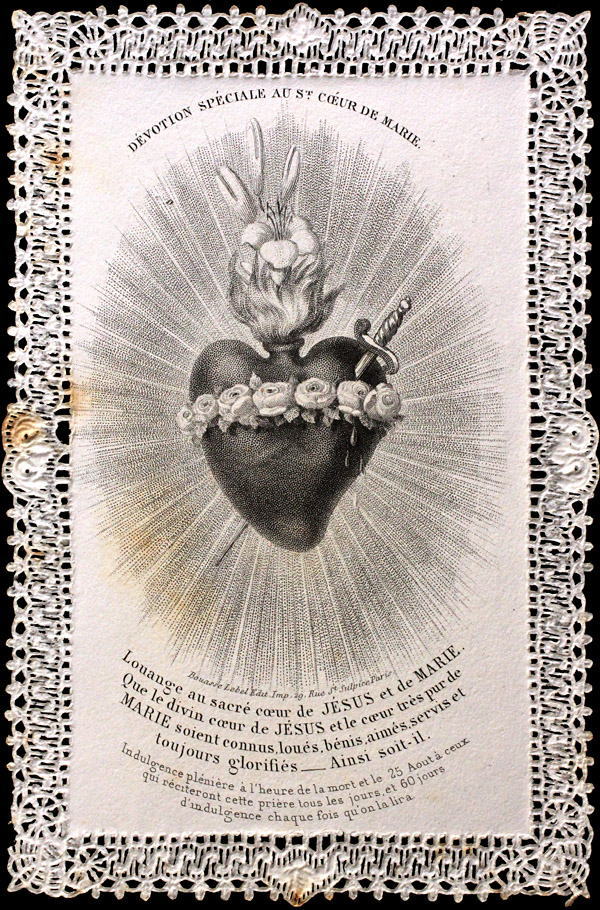 DÉVOTION SPÉCIALE AU ST CŒUR DE MARIE.
Bouasse Lebel Edit. Imp. 29. Rue St Sulpice Paris
Louange au sacré cœur de JÉSUS et de MARIE.
Que le divin cœur de JÉSUS et le cœur très pur de
MARIE soient connus, loués, bénis, aimés, servis et
toujours glorifiés — Ainsi soit-il.
Indulgence plénière à l'heure de la mort et le 25 Aout à ceux
qui réciteront cette prière tous les jours, et 60 jours
d'indulgence chaque fois qu'on la lira.